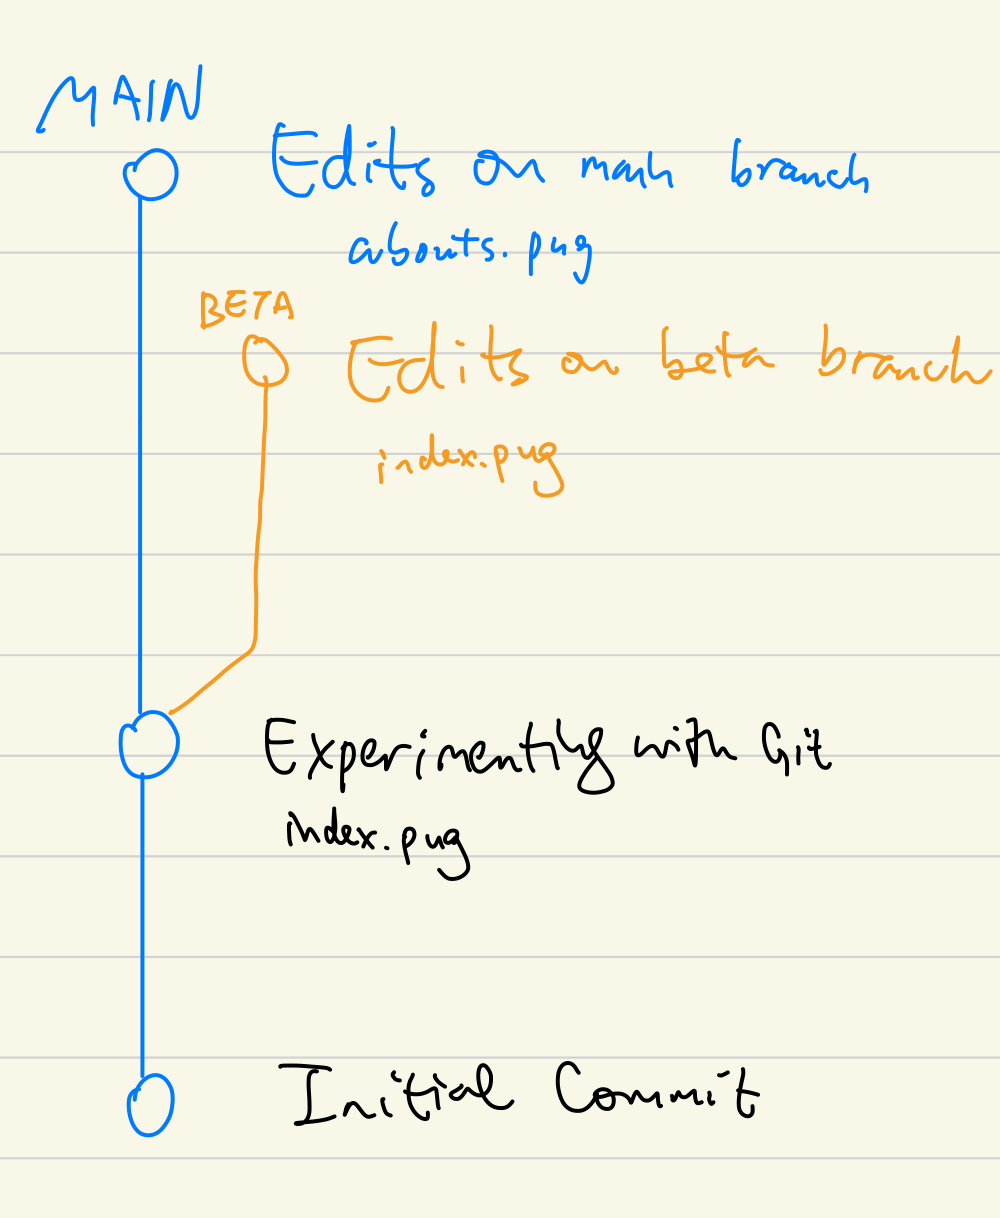 MAIN
Edits on main branch
abouts.pug
BETA
Edits on beta branch
index.pug
Experimenting with Git
index.pug
Initial Commit